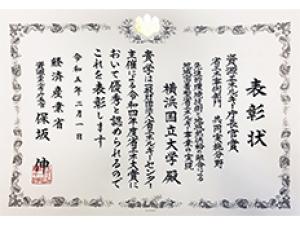 表彰状
資源エネルギー庁長官賞
省エネ事例部門　共同実施分野
横浜国立大学 殿
貴学は一般財団法人省エネルギーセンター
主催による令和四年度省エネ大賞に
おいて優秀と認められるので
これを表彰します
令和五年二月一日
経済産業省
資源エネルギー庁長官
保坂 伸